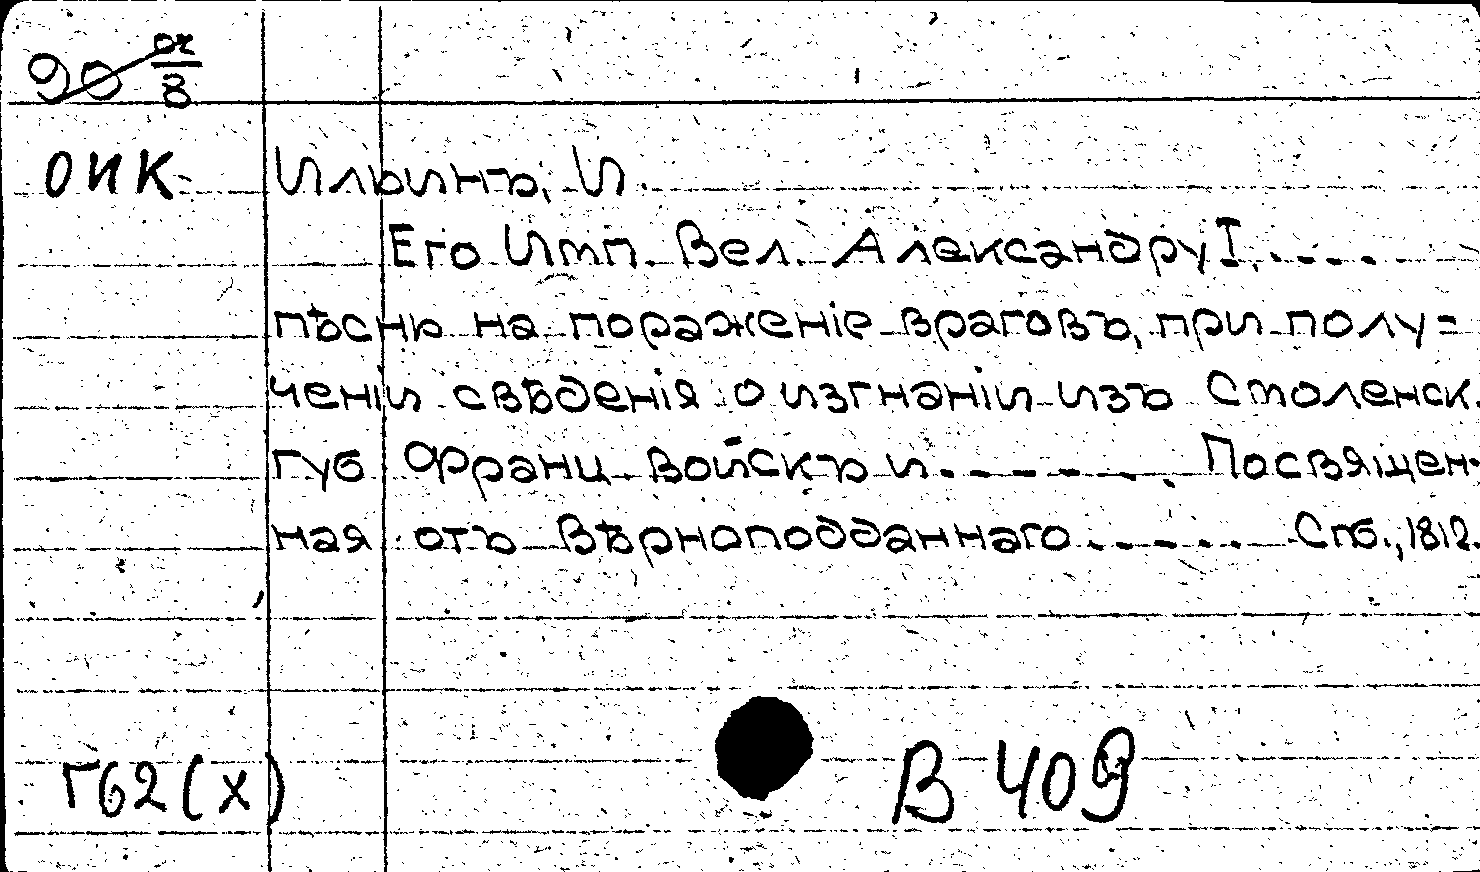 ОИК Ильинъ, И.
Его Имп. Вел. Александру I,.----
пѣснь на пораженіе враговъ, при полу=
ченіи свѣденія о изгнаніи изъ Смоленск.
губ Франц. войскъ и.----. Посвящен-
ная отъ вѣрноподданнаго.---- Спб., 1812.
Г62(х) В 409